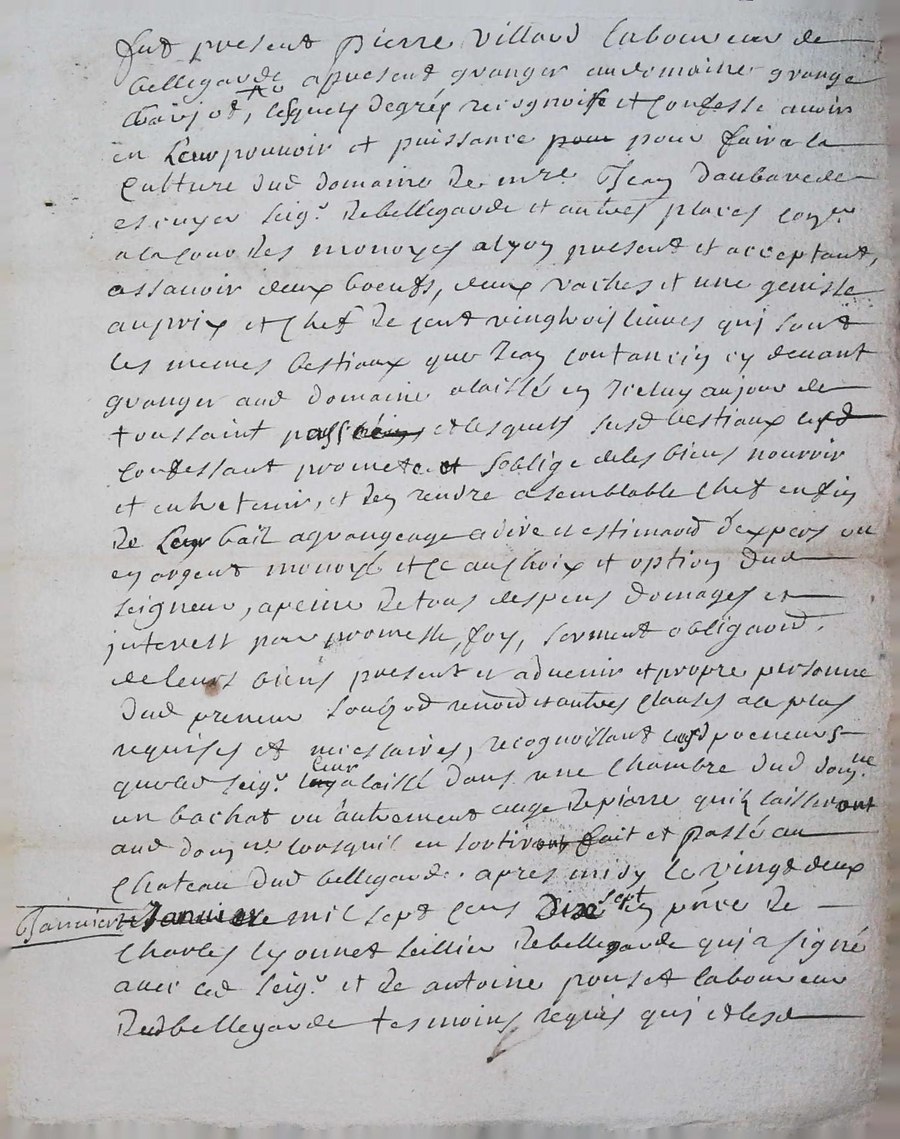 fut present pierre villard laboureur de
bellegarde apresent granger audomaine grange
, lesquels degrés recognoisse et confesse avoir
en leur pouvoir et puissance pour pour faire la
culture dud domaine de mre Jean daubarede
escuyer seigr. debellegarde et autres places conser
a la cour des monoyes alyon present et acceptant,
assavoir deux boeufs, deux vaches et une genisse
au prix et chef de cent vingt livres qui sont
les memes bestiaux que Jean coutancin cy devant
granger aud domaine a laissé en iceluy au jour de
toussaint passé et lesquels susd bestiaux lesd
confessant promete et soblige de les bien nourrir
et entretenir, et den rendre a semblable chef en fin
de leur bail a grangeage a dire et estimaon dexpers ou
en argent monoyé et ce au choix et option dud
seigneur, a peine de tous despens domages et
interest par promesse, foy, serment obligaon
de leurs biens present et advenir et propre personne
dud preneur soubz renon et autres clauses a ce plus
requises et necessaires, recognoissant lesd preneurs
que led seigr. leur a laissé dans une chambre dud domne
un bachat ou autrement auge de pierre quils laisseront
aud domne lorsquil en sortiront fait et passé au
chateau dud bellegarde apres midy le vingt deux
Janvier Janvier mil sept cens dix sept en pnce de
charles lyonnet sellier de bellegarde qui a signé
avec led seigr. et de antoine ponset laboureur
dud bellegarde tesmoins requis qui et lesd